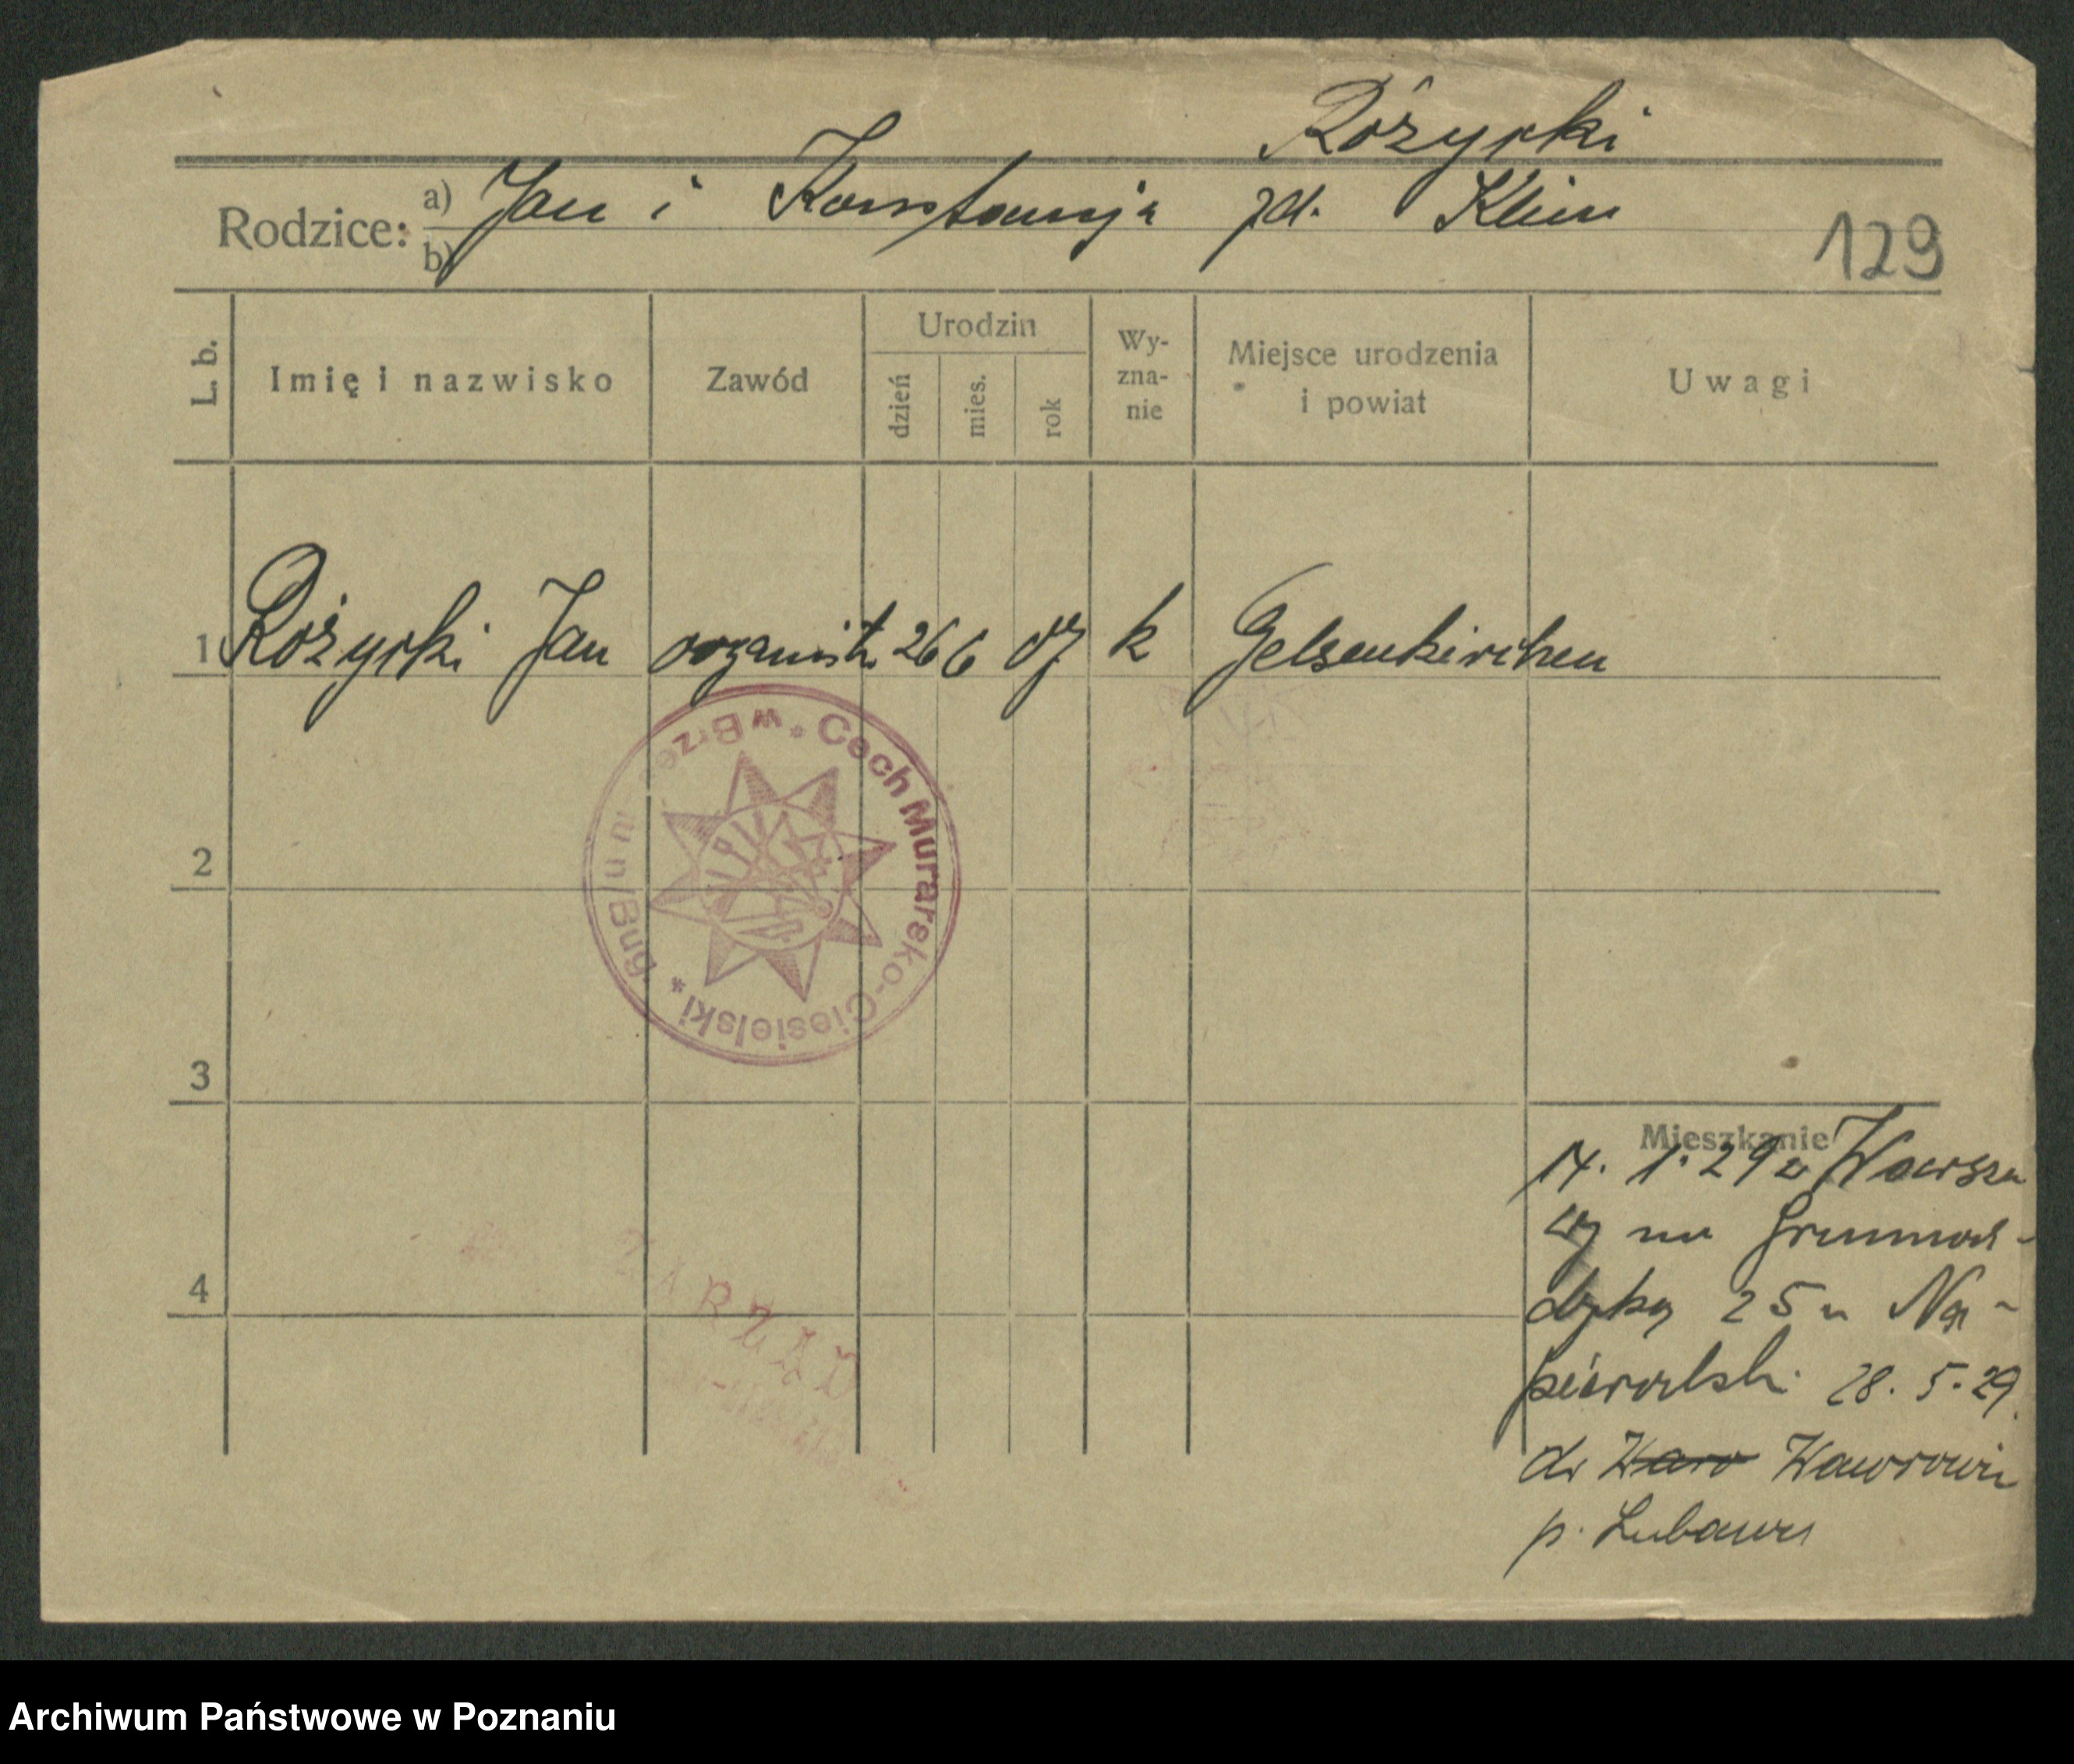 Różycki
Rodzice: a) Jan i Konstancja zd. Klein
b)
129
L. b.
Imię i nazwisko
Zawód
Urodzin
dzień
mies.
rok
Wy-
zna-
nie
Miejsce urodzenia
i powiat
Uwagi
1 Różycki Jan organista 26 6 07 k Gelsenkirchen
* Cech Murarsko-Ciesielski * w Brze iu n/Bug.
2
3
4
ZARZĄD
Mieszkanie
14. 1. 29 z Warsza
wy na Grunwal-
dzką 25 u Na-
pieralski 28. 5. 29.
do Wawrowic
p. Lubawa
Archiwum Państwowe w Poznaniu